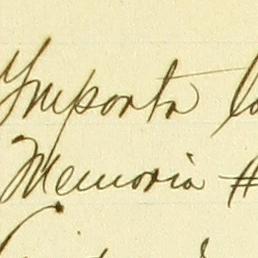 Importa
Memoria #